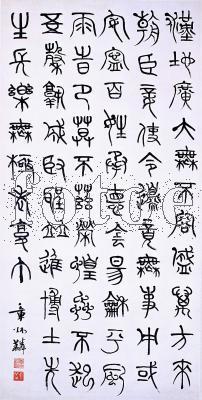 漢地廣大無不容盛萬方來
朝臣妾使令邊竟無事中或
安寧百姓承德陰陽和平風
雨時節莫不滋榮蝗蟲不起
五穀孰成賢聖並進博士先
生長樂無極老復丁
章炳麟